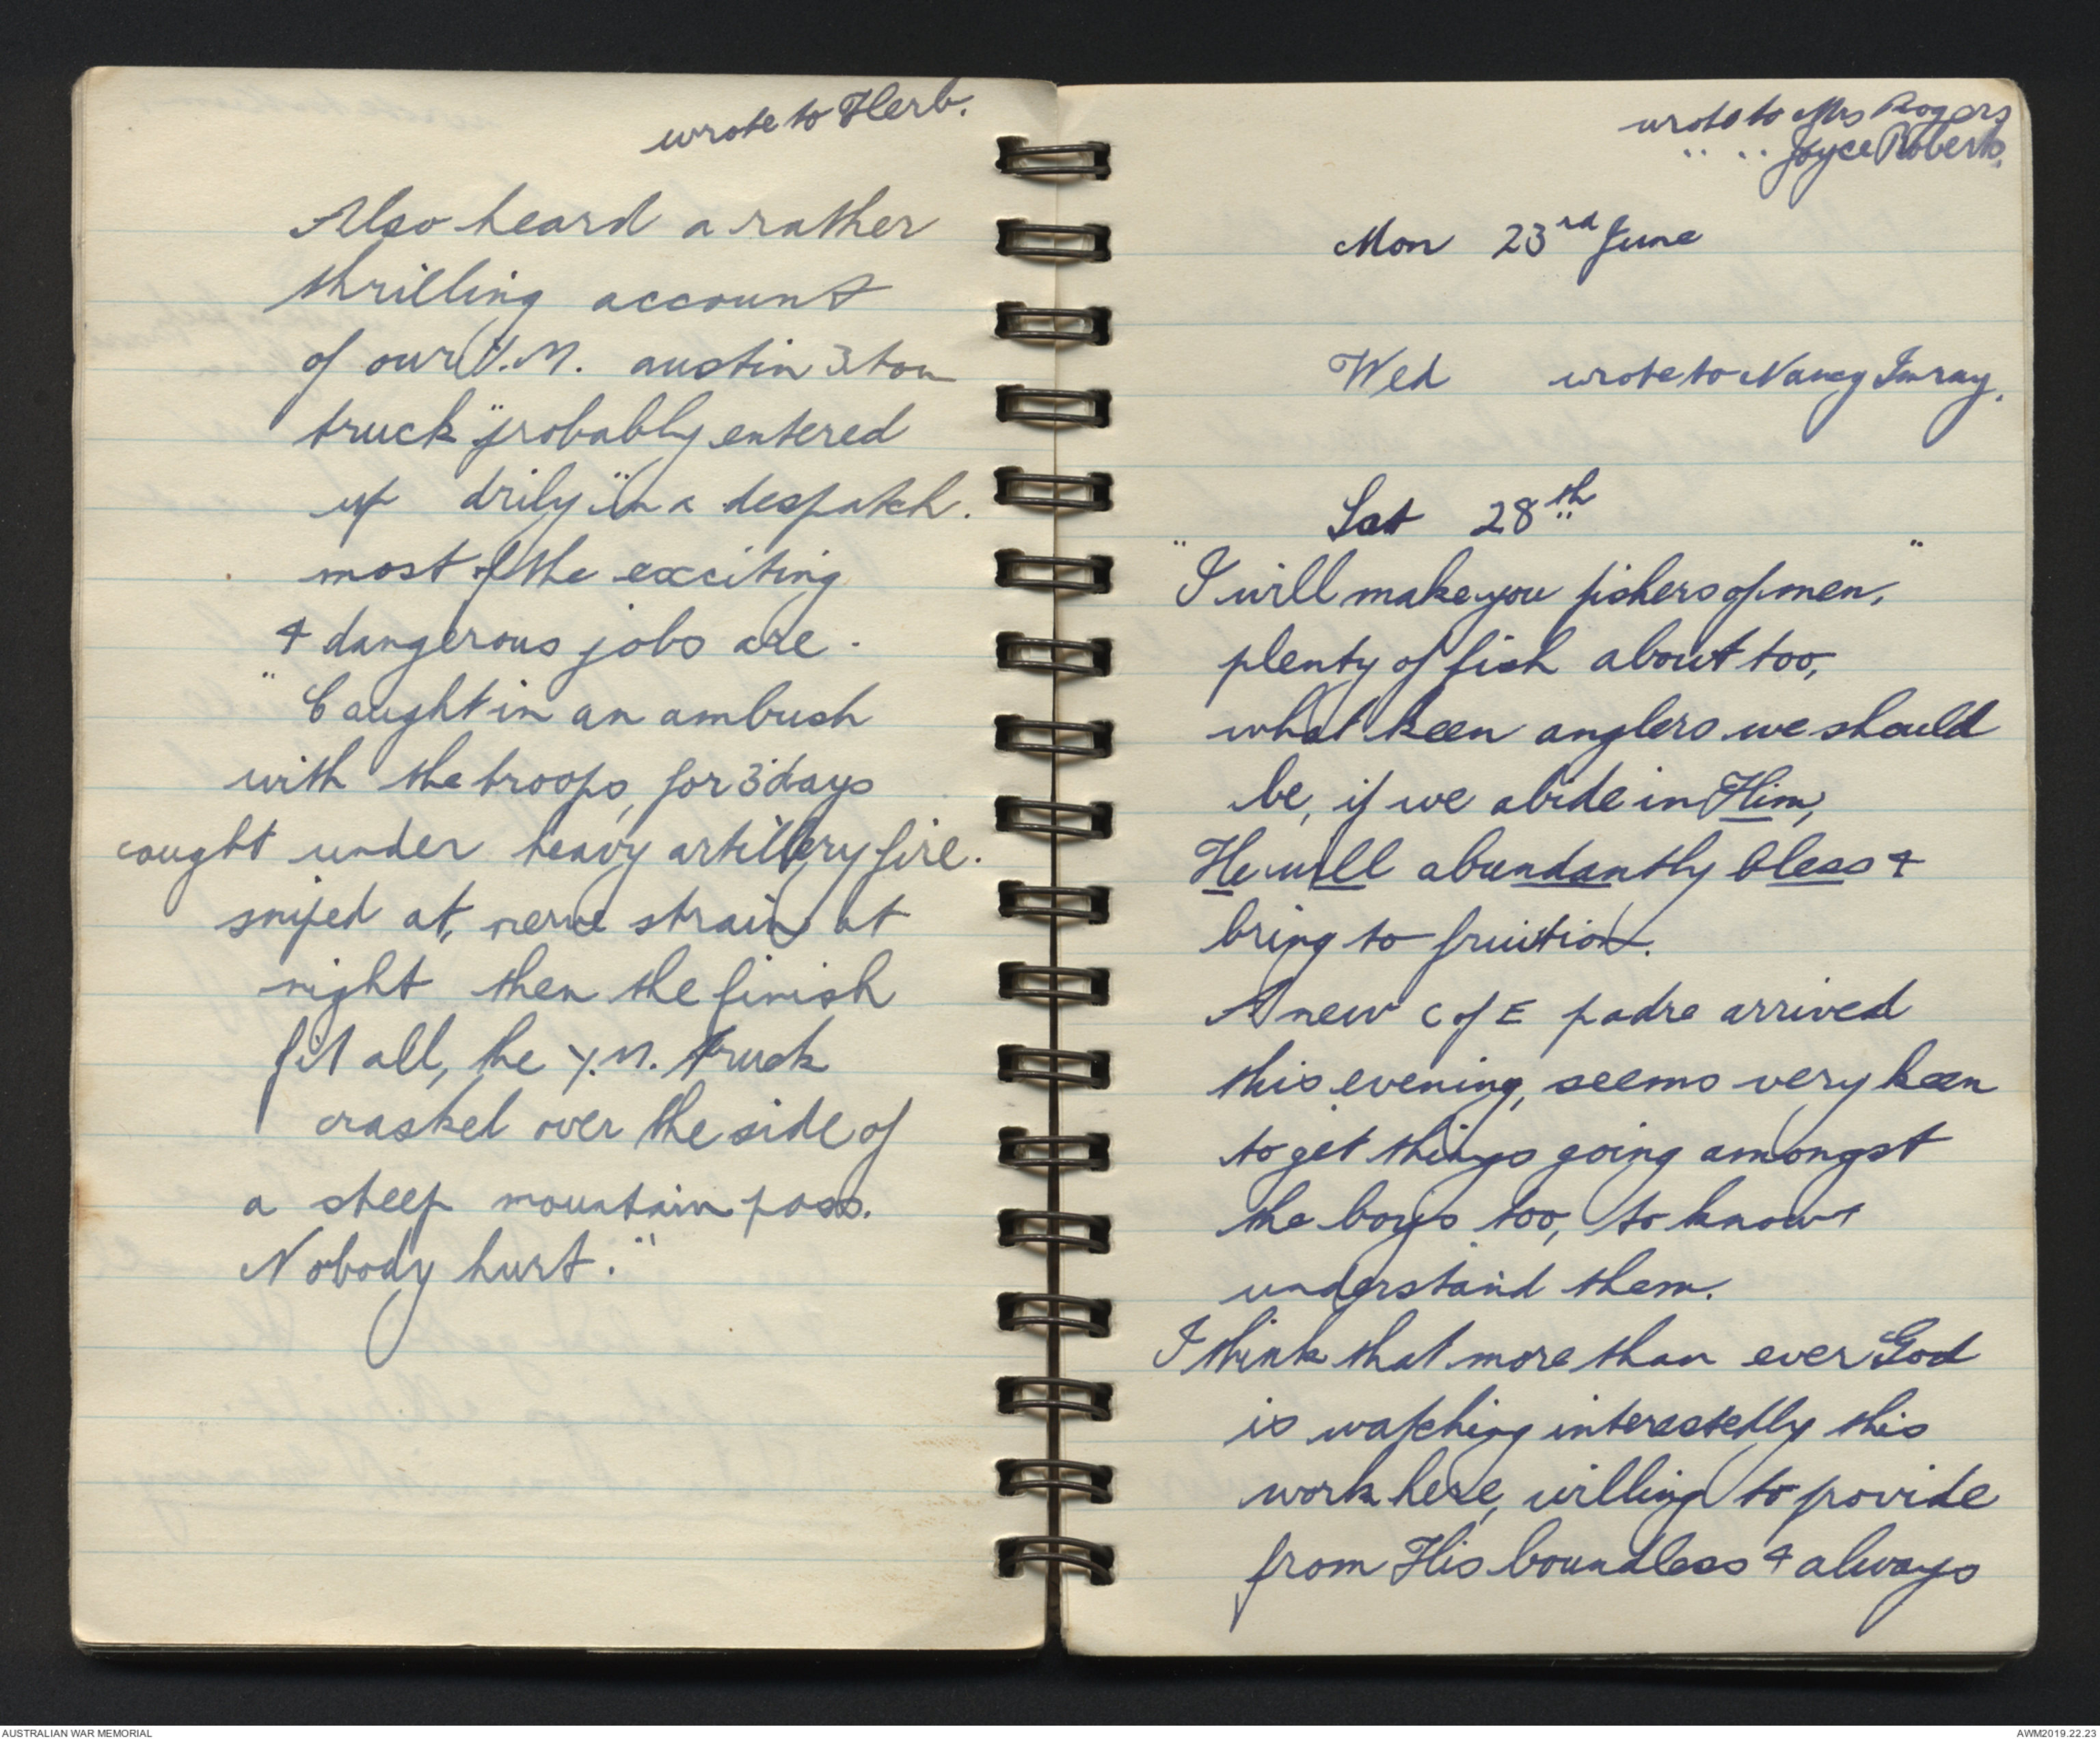 wrote to Herb.
Also heard a rather
thrilling account
of our Y.M. austin 3 ton
truck "probably entered
up drily" in a despatch.
most of the exciting
& dangerous jobs are.
"Caught in an ambush
with the troops, for 3 days
caught under heavy artillery fire.
sniped at, nerve strain at
night then the finish
fit all, the Y.M. truck
crashed over the side of
a steep mountain pass.
Nobody hurt."
wrote to Mrs Rogers
" " Joyce Roberts.
Mon 23rd June
Wed wrote to Nancy Imray.
Sat 28th
"I will make you fishers of men,"
plenty of fish about too,
what keen anglers we should
be, if we abide in Him,
He will abundantly bless &
bring to fruition.
A new C of E padre arrived
this evening, seems very keen
to get things going amongst
the boys too, to know &
understand them.
I think that more than ever God
is watching interestedly this
work here, willing to provide
from His boundless & always
AUSTRALIAN WAR MEMORIAL
AWM2019.22.23